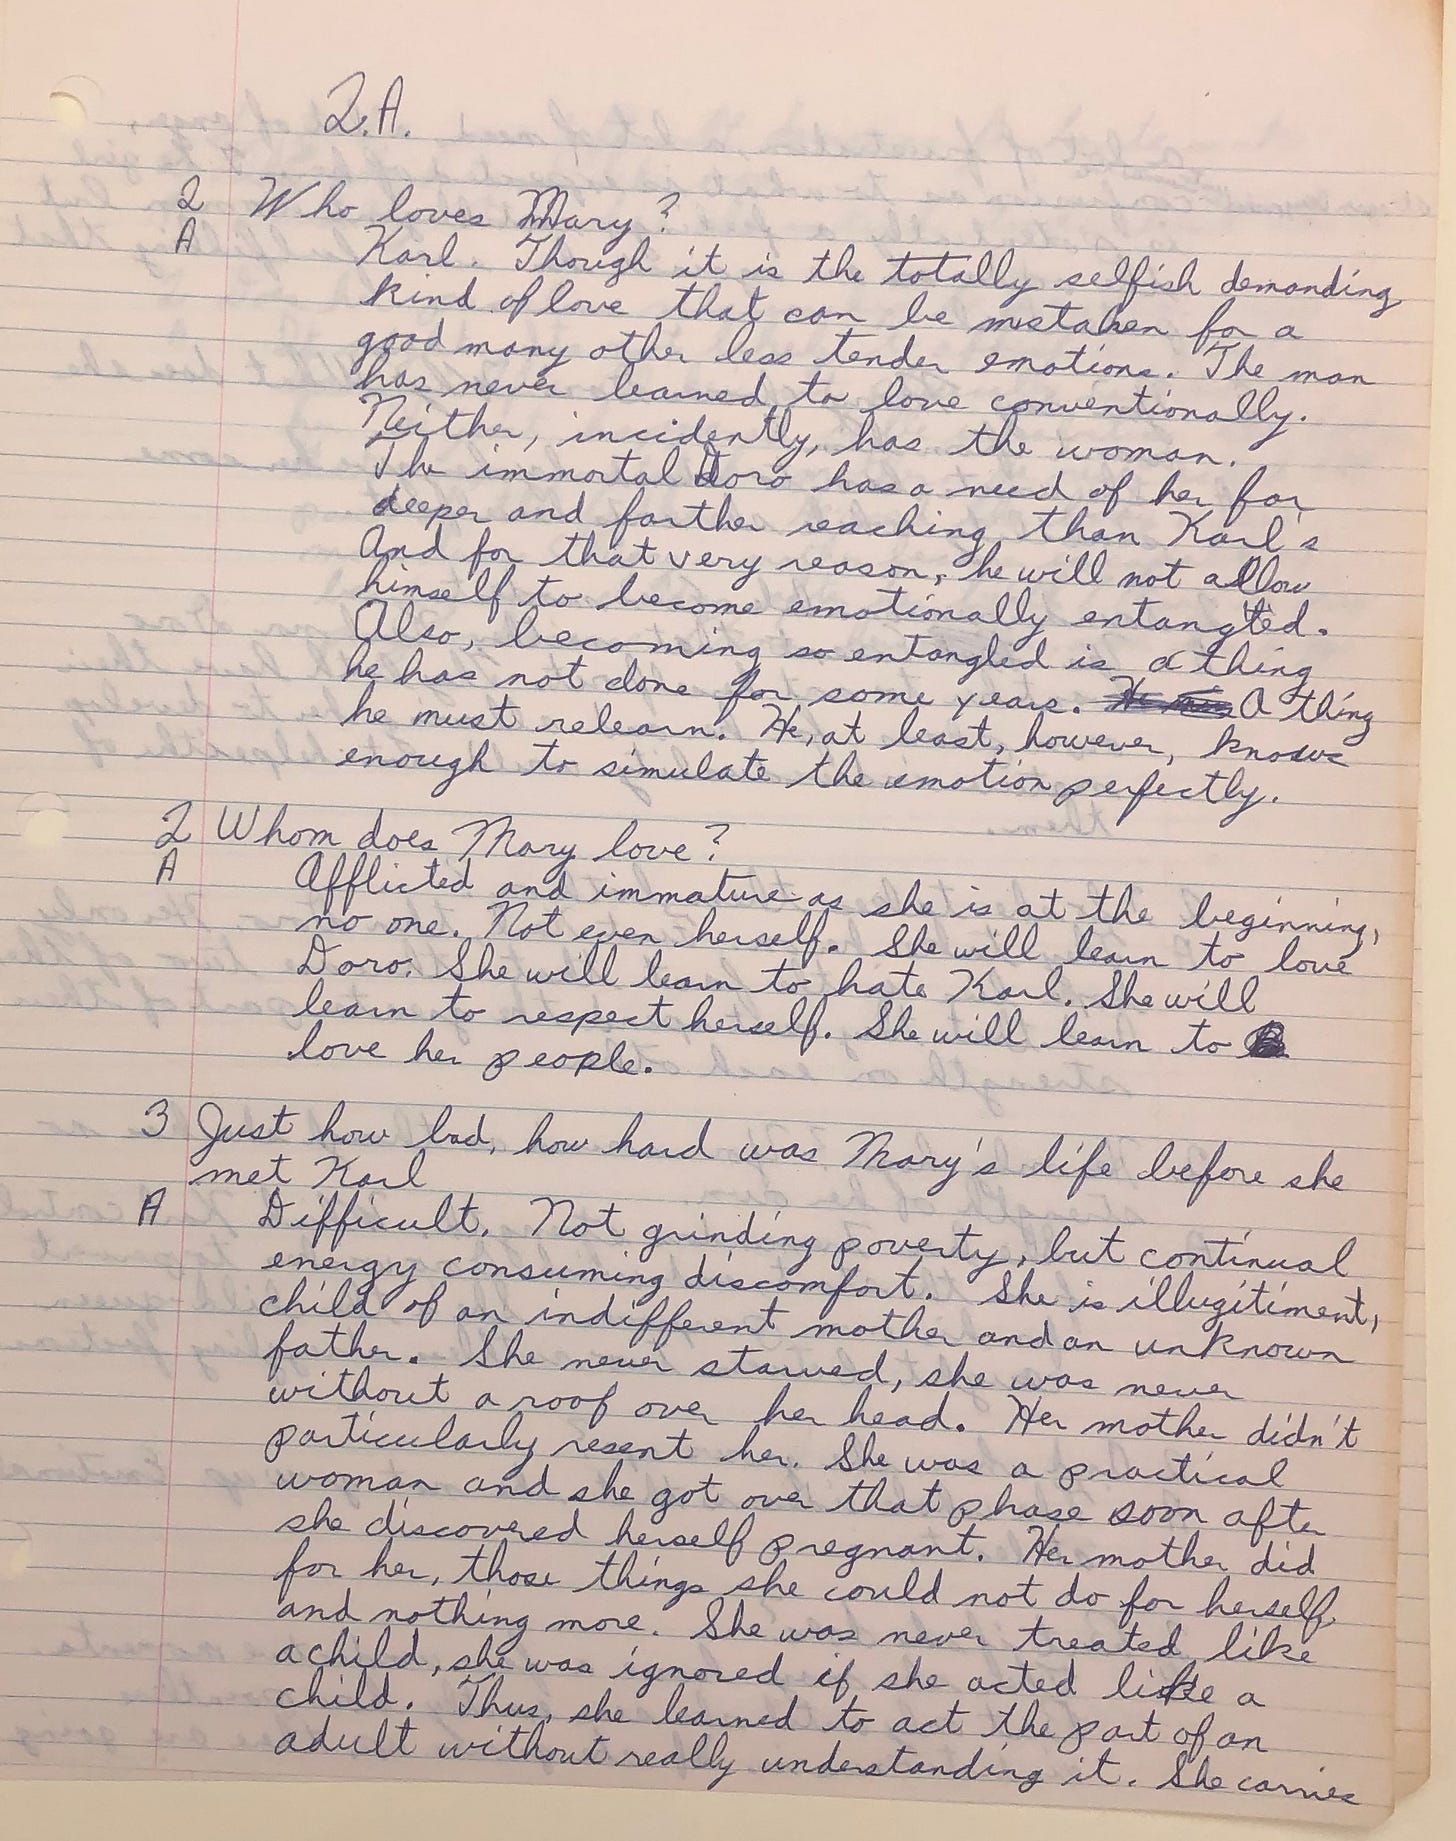 Q.A.
Q Who loves Mary?
A Karl. Though it is the totally selfish demanding
kind of love that can be mistaken for a
good many other less tender emotions. The man
has never learned to love conventionally.
Neither, incidently, has the woman.
The immortal Doro has a need of her far
deeper and farther reaching than Karl's
And for that very reason, he will not allow
himself to become emotionally entangled.
Also, becoming so entangled is a thing
he has not done for some years. A thing
he must relearn. He, at least, however, knows
enough to simulate the emotion perfectly.
Q Whom does Mary love?
A Afflicted and immature as she is at the beginning,
no one. Not even herself. She will learn to love
Doro. She will learn to hate Karl. She will
learn to respect herself. She will learn to
love her people.
3 Just how bad, how hard was Mary's life before she
met Karl
A Difficult. Not grinding poverty, but continual
energy consuming discomfort. She is illugitiment,
child of an indifferent mother and an unknown
father. She never starved, she was never
without a roof over her head. Her mother didn't
particularly resent her. She was a practical
woman and she got over that phase soon after
she discovered herself pregnant. Her mother did
for her, those things she could not do for herself,
and nothing more. She was never treated like
a child, she was ignored if she acted like a
child. Thus, she learned to act the part of an
adult without really understanding it. She carries